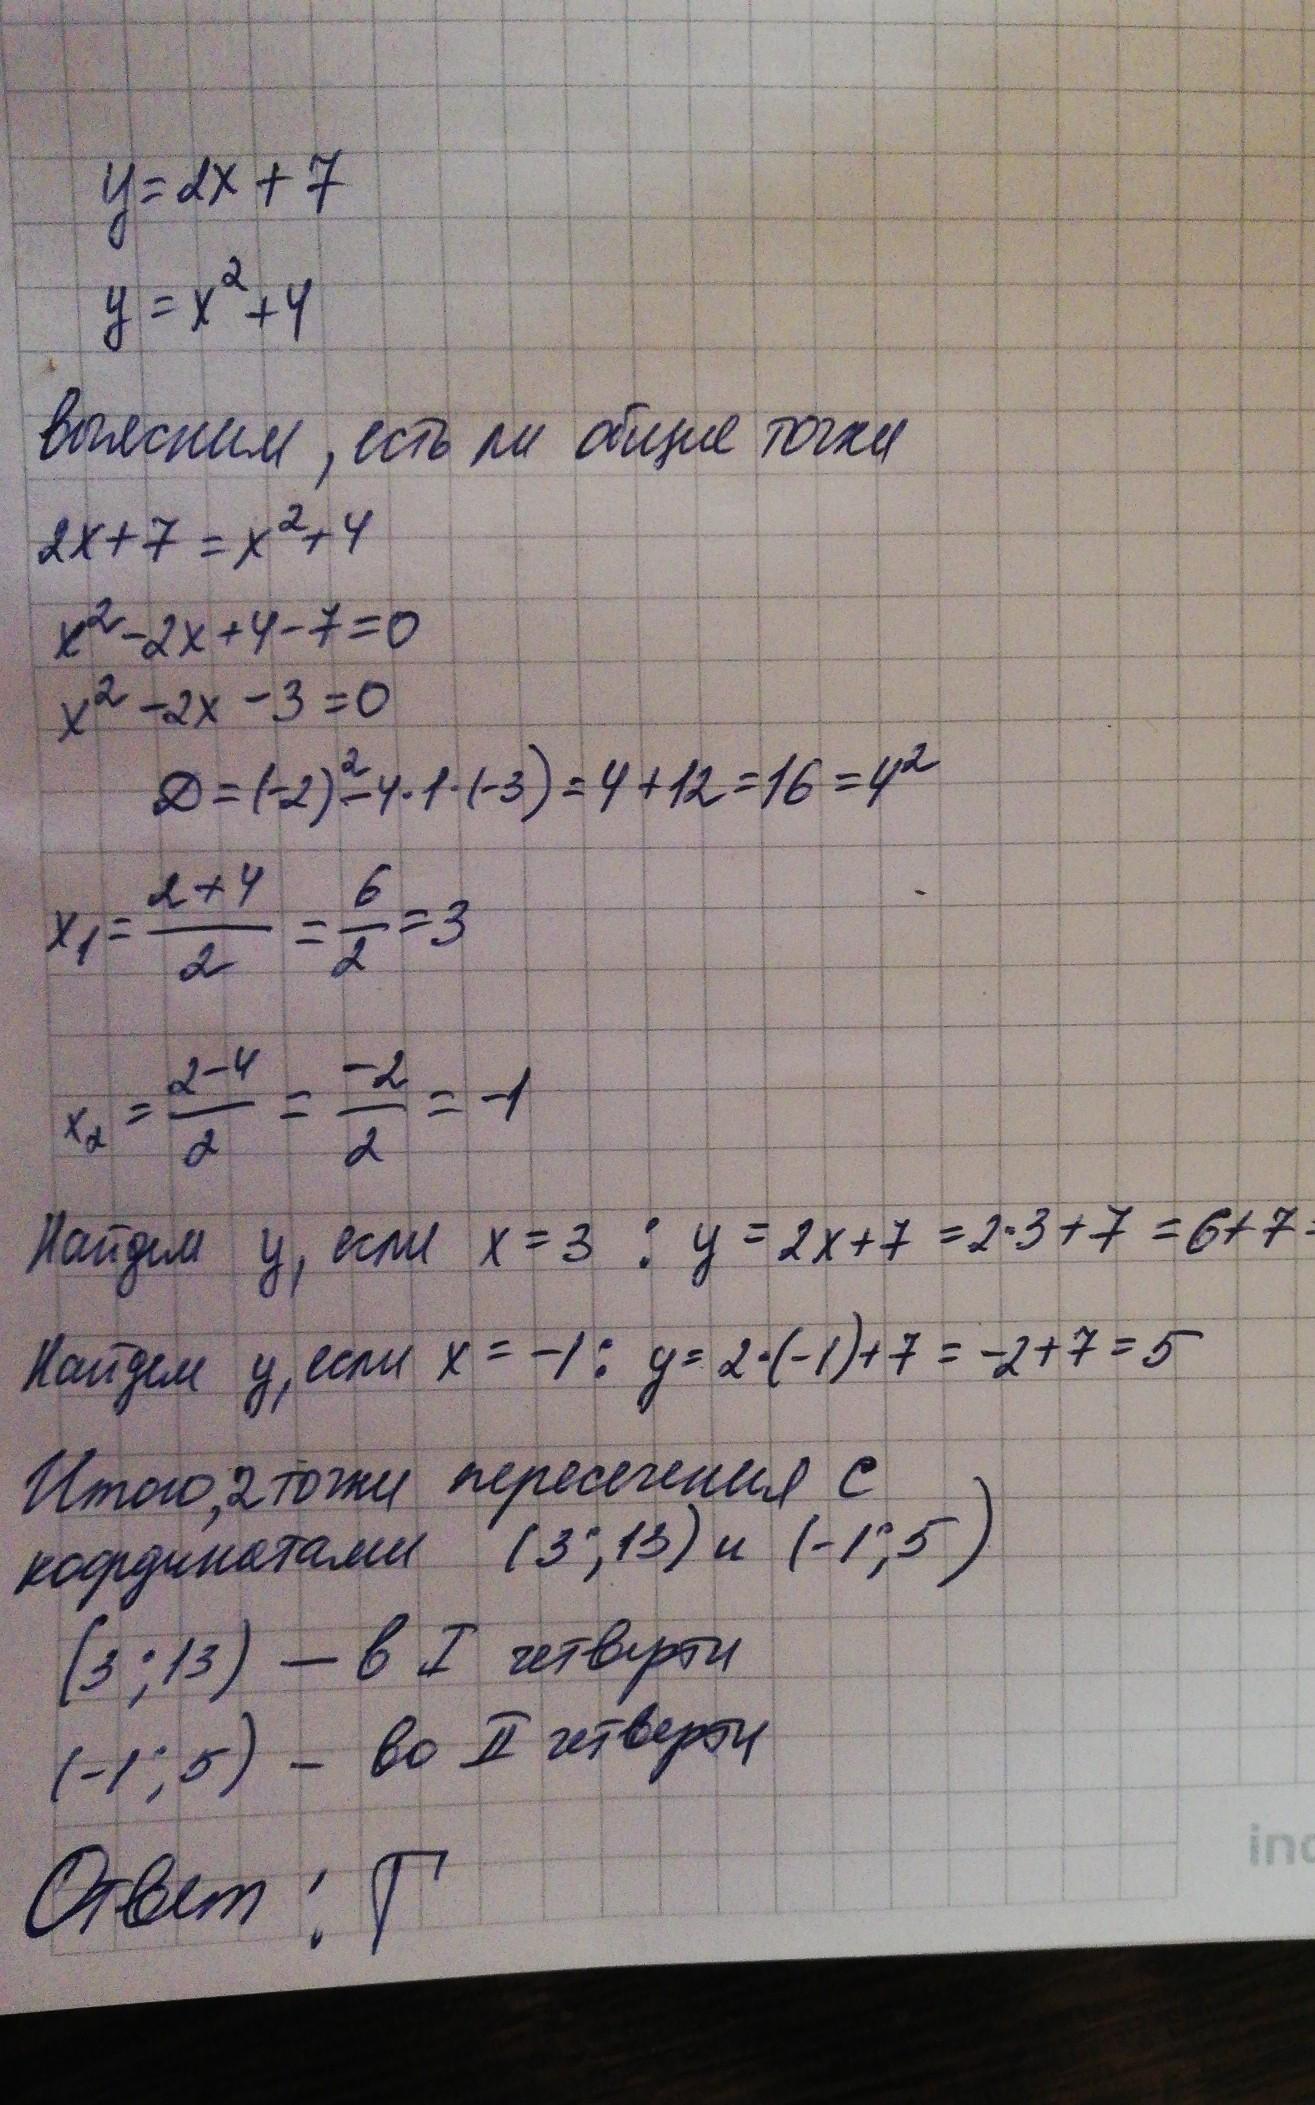 y=2x+7
y=x²+4
Выясним, есть ли общие точки
2x+7=x²+4
x²-2x+4-7=0
x²-2x-3=0
D=(-2)²-4·1·(-3)=4+12=16=4²
x₁=(2+4)/2=6/2=3
x₂=(2-4)/2=-2/2=-1
Найдем y, если x=3: y=2x+7=2·3+7=6+7=
Найдем y, если x=-1: y=2·(-1)+7=-2+7=5
Итого, 2 точки пересечения с
координатами (3;13) и (-1;5)
(3;13) — в I четверти
(-1;5) - во II четверти
Ответ: Г